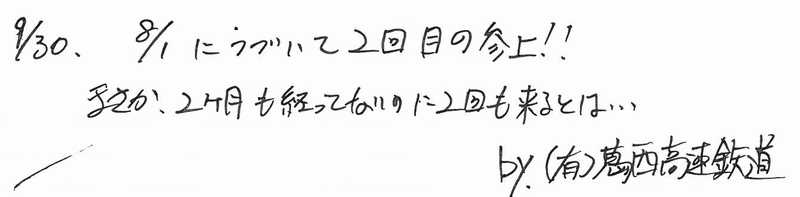 9/30、 8/1 につづいて2回目の参上!!
まさか、2ヶ月も経ってないのに2回も来るとは…
by.(有)葛西高速鉄道